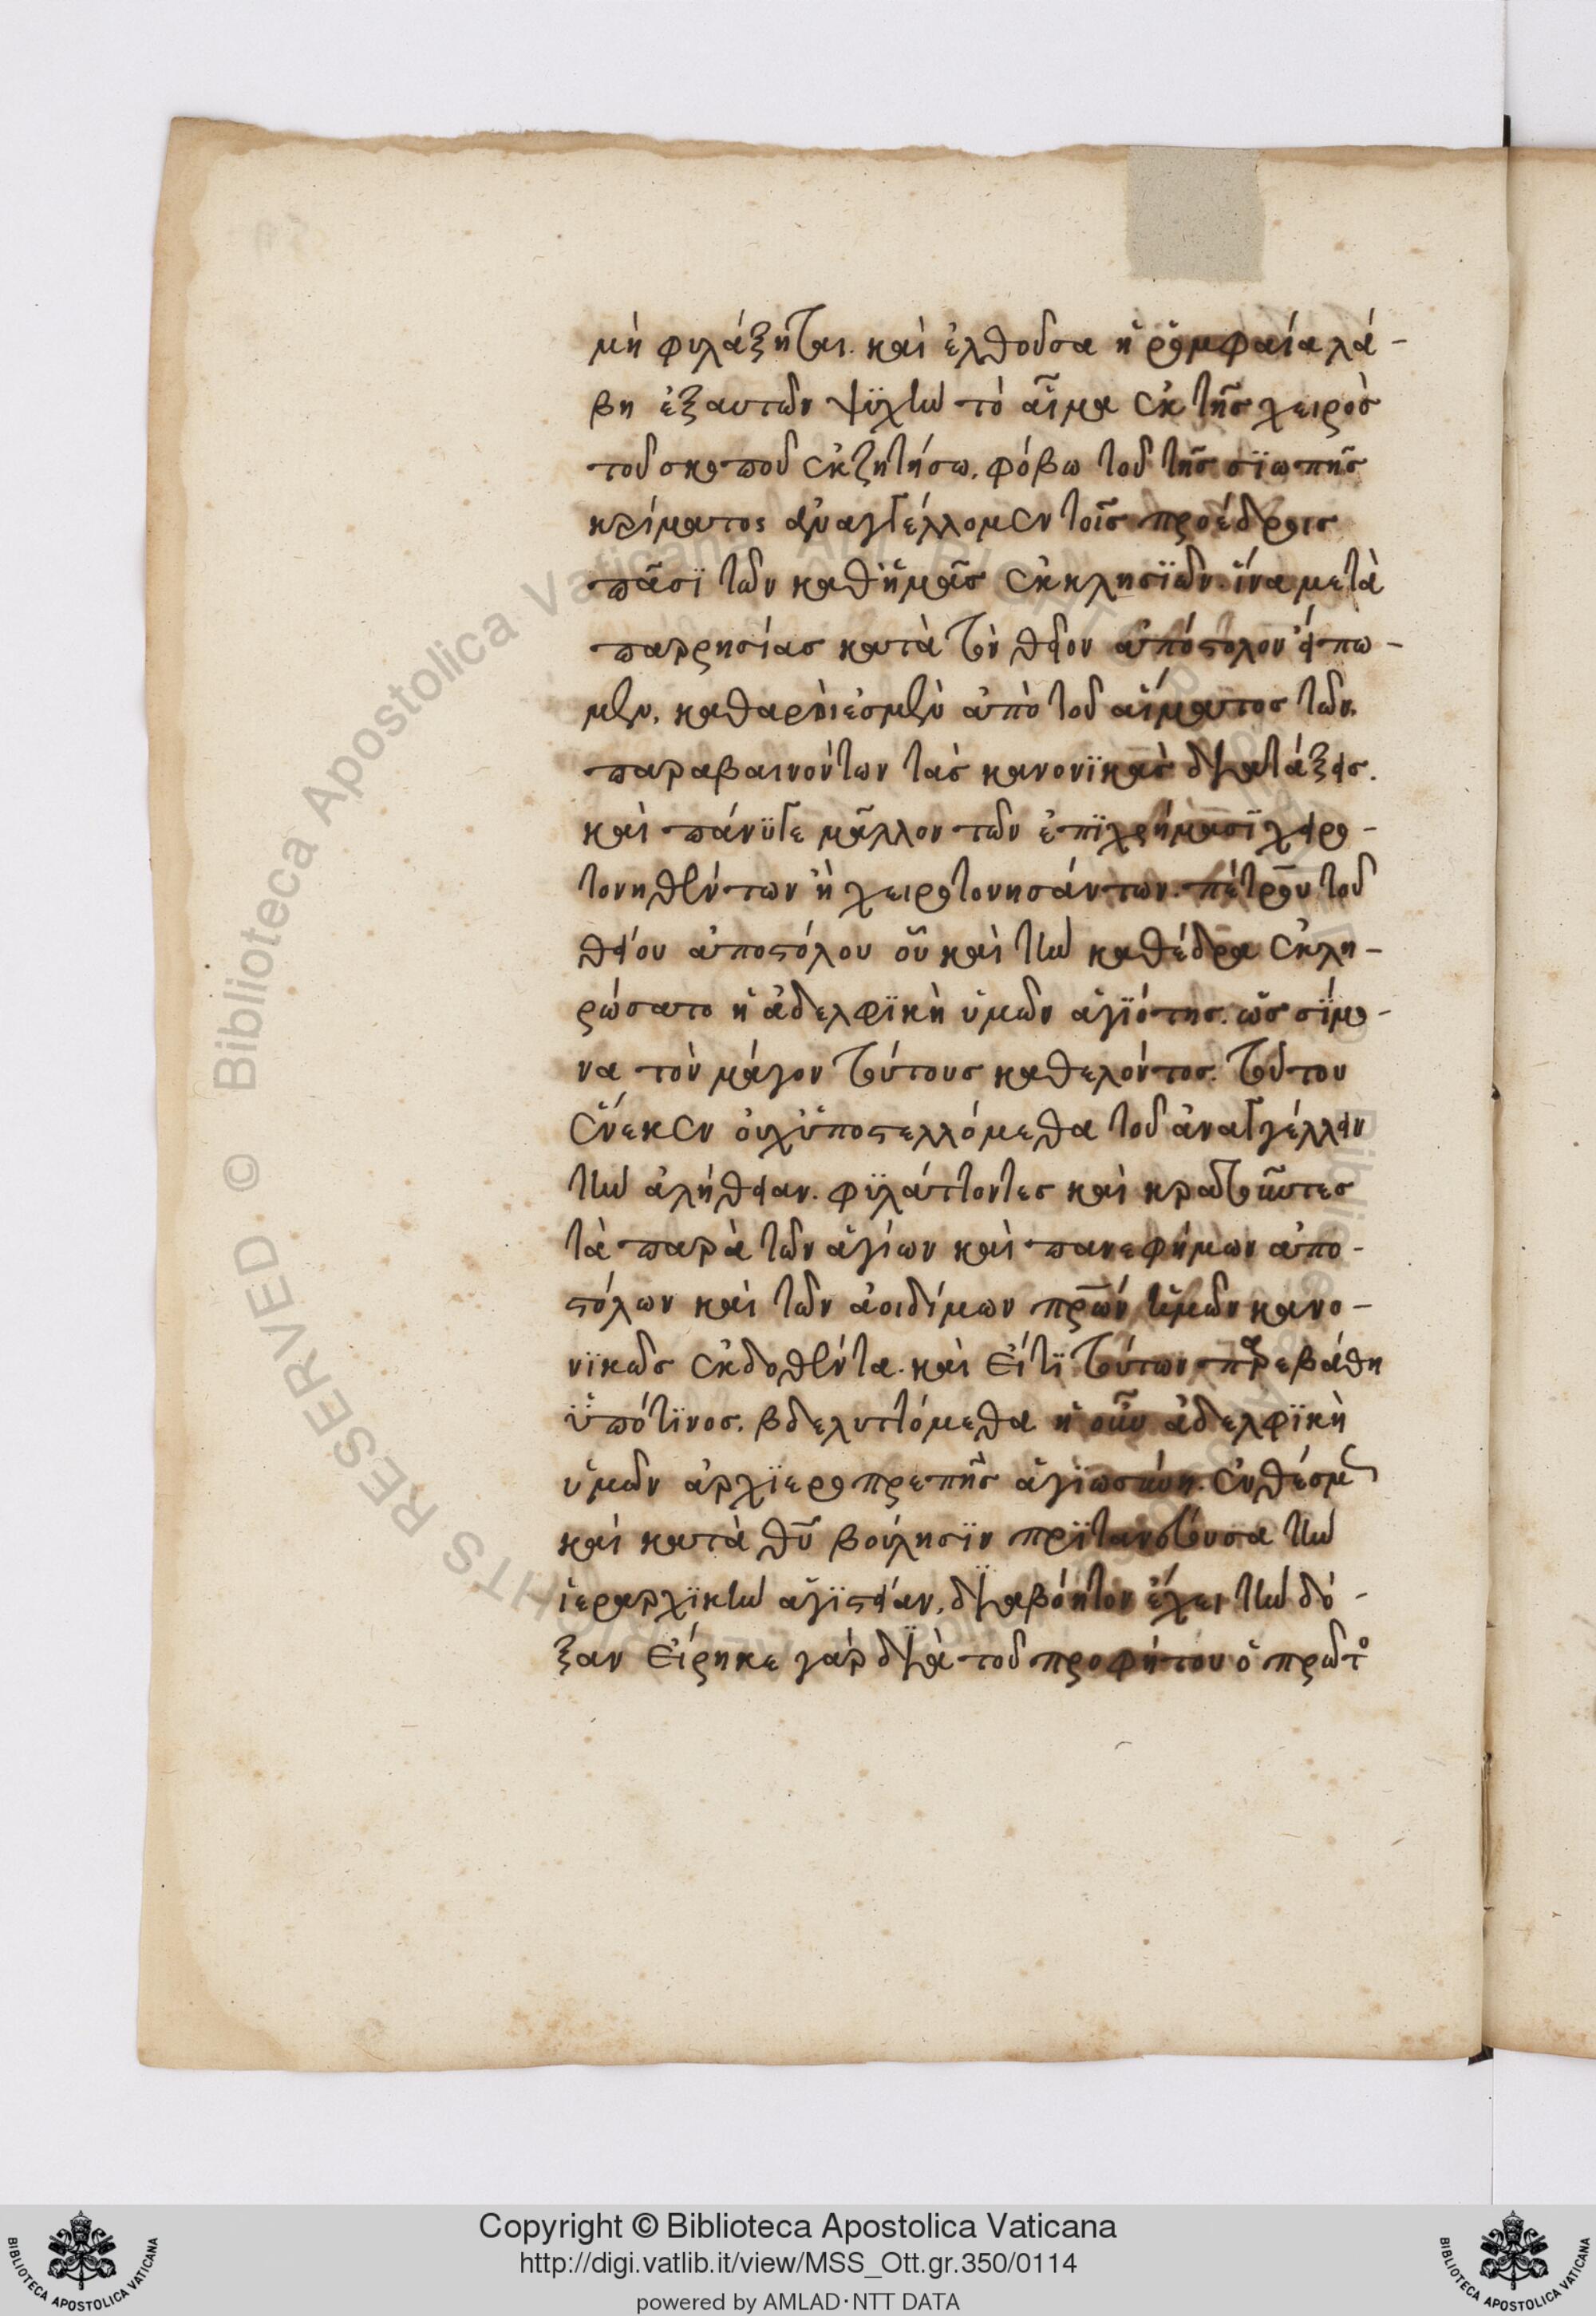 μὴ φυλάξηται. καὶ ἐλθοῦσα ἡ ῥομφαία λά-
βη ἐξαυτῶν ψϋχὴν τὸ αἷμα ἐκ τῆς χειρὸς
τοῦ σκοποῦ ἐκζητήσω. φόβω τοῦ τῆς σϊωπῆς
κρίματος ἀναγγέλλομεν τοῖς προέδροις
πᾶσϊ τῶν καθἡμᾶς ἐκκλησϊῶν. ἵνα μετὰ
παρρησίας κατὰ τὸν θεῖον ἀπόστολον εἴπω-
μεν. καθαροὶ ἐσμὲν ἀπὸ τοῦ αἵματος τῶν
παραβαινόντων τὰς κανονϊκὰς δϊατάξεις.
καὶ πάνϋγε μᾶλλον τῶν ἐπϊχρήμασϊ χειρο-
τονηθέντων ἢ χειροτονησάντων. πέτρου τοῦ
θείου ἀποστόλου οὗ καὶ τὴν καθέδρα ἐκλη-
ρώσατο ἡ ἀδελφϊκὴ ὑμῶν ἁγϊότης. ὡς σΐμο-
να τὸν μάγον τούτους καθελόντος. τούτου
ἕνεκεν οὐχὑποστελλόμεθα τοῦ ἀναγγέλλειν
τὴν ἀλήθειαν. φϋλάττοντες καὶ κρατοῦντες
τὰ παρὰ τῶν ἁγίων καὶ πανεφήμων ἀπο-
στόλων καὶ τῶν ἀοιδίμων πρων ἡμῶν κανο-
νϊκῶς ἐκδοθέντα. καὶ εἴτϊ τούτων παρεβάθη
ϋπότϊνος. βδελυττόμεθα ἡ οὖν ἀδελφϊκὴ
ὑμῶν ἀρχϊεροπρεπὴς ἁγϊωσύνη. ἐνθέσμ
καὶ κατὰ θυ βούλησϊν πρϊτανεύουσα τὴν
ἱεραρχϊκὴν ἁγϊστείαν. δϊαβόητον ἔχει τὴν δό-
ξαν εἴρηκε γὰρ δϊὰ τοῦ προφήτου ὁ πρῶτο
Copyright © Biblioteca Apostolica Vaticana
http://digi.vatlib.it/view/MSS_Ott.gr.350/0114
powered by AMLAD·NTT DATA